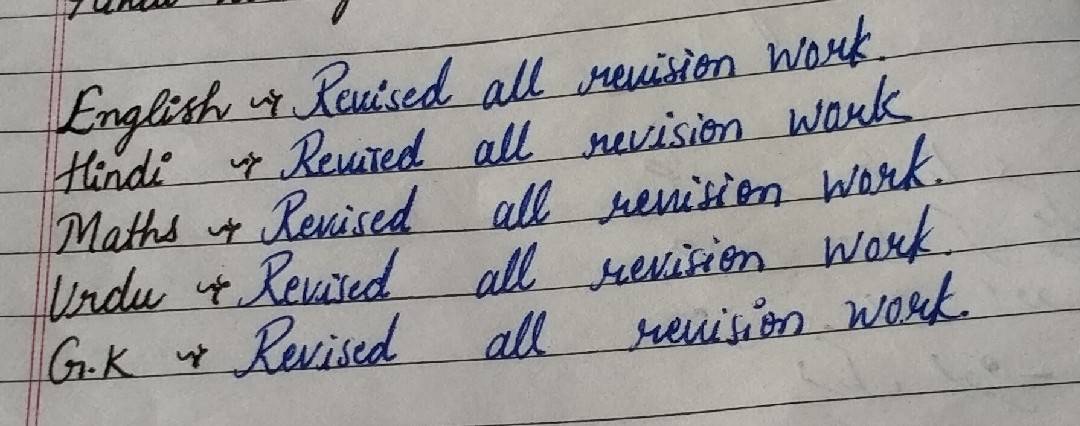 English → Revised all revision work.
Hindi → Revised all revision work
Maths → Revised all revision work.
Urdu → Revised all revision work.
G.K → Revised all revision work.